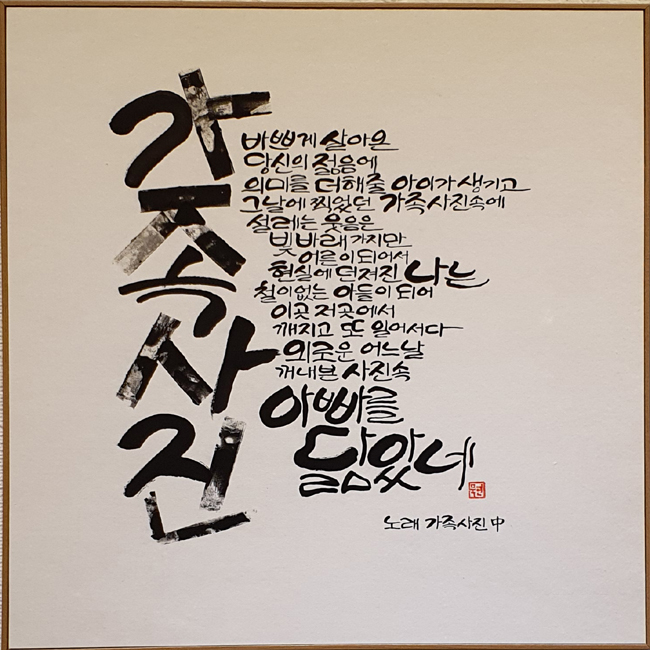 가족사진
바쁘게 살아온
당신의 젊음에
의미를 더해줄 아이가 생기고
그날에 찍었던 가족사진속에
설레는 웃음은
빛바래 가지만
어른이 되어서
현실에 던져진 나는
철이없는 아들이 되어
이곳 저곳에서
깨지고 또 일어서다
외로운 어느날
꺼내본 사진속
아빠를
닮았네
노래 가족사진 中